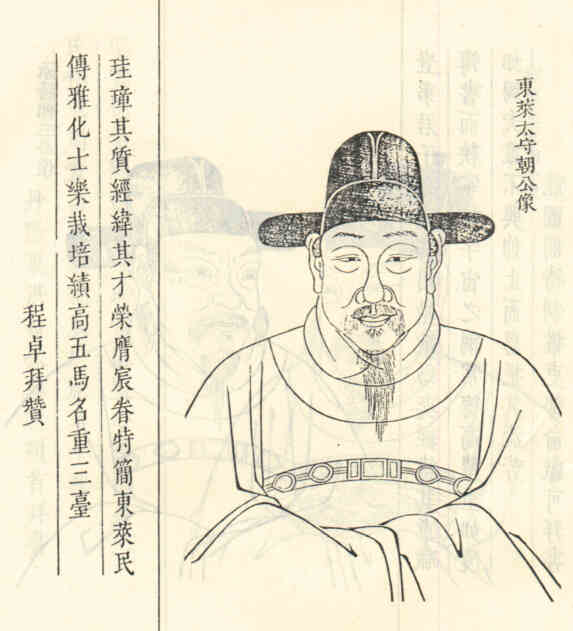 東萊太守朝公像
珪璋其質經緯其才榮膺宸眷特簡東萊民
傳雅化士樂栽培績高五馬名重三臺
程卓拜贊